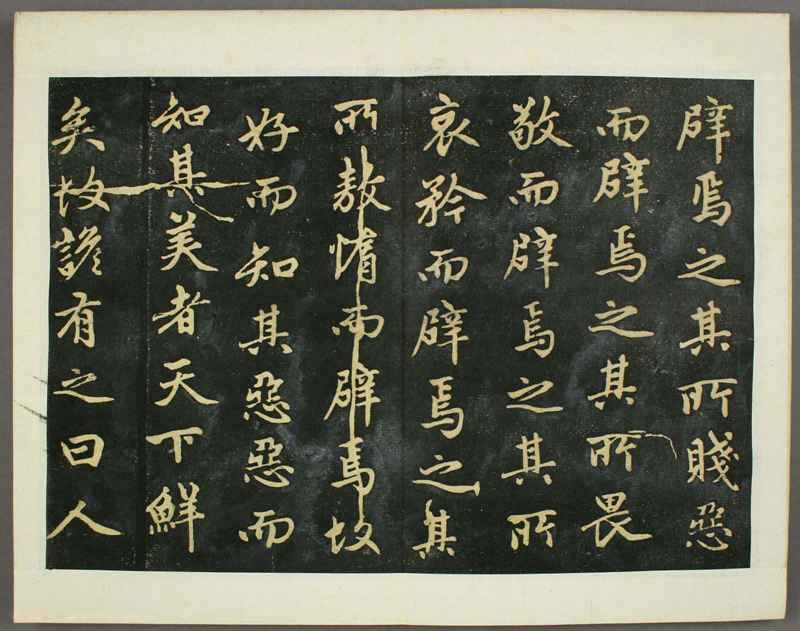 辟焉之其所賤惡
而辟焉之其所畏
敬而辟焉之其所
哀矜而辟焉之其
所敖惰而辟焉故
好而知其惡惡而
知其美者天下鮮
矣故諺有之曰人